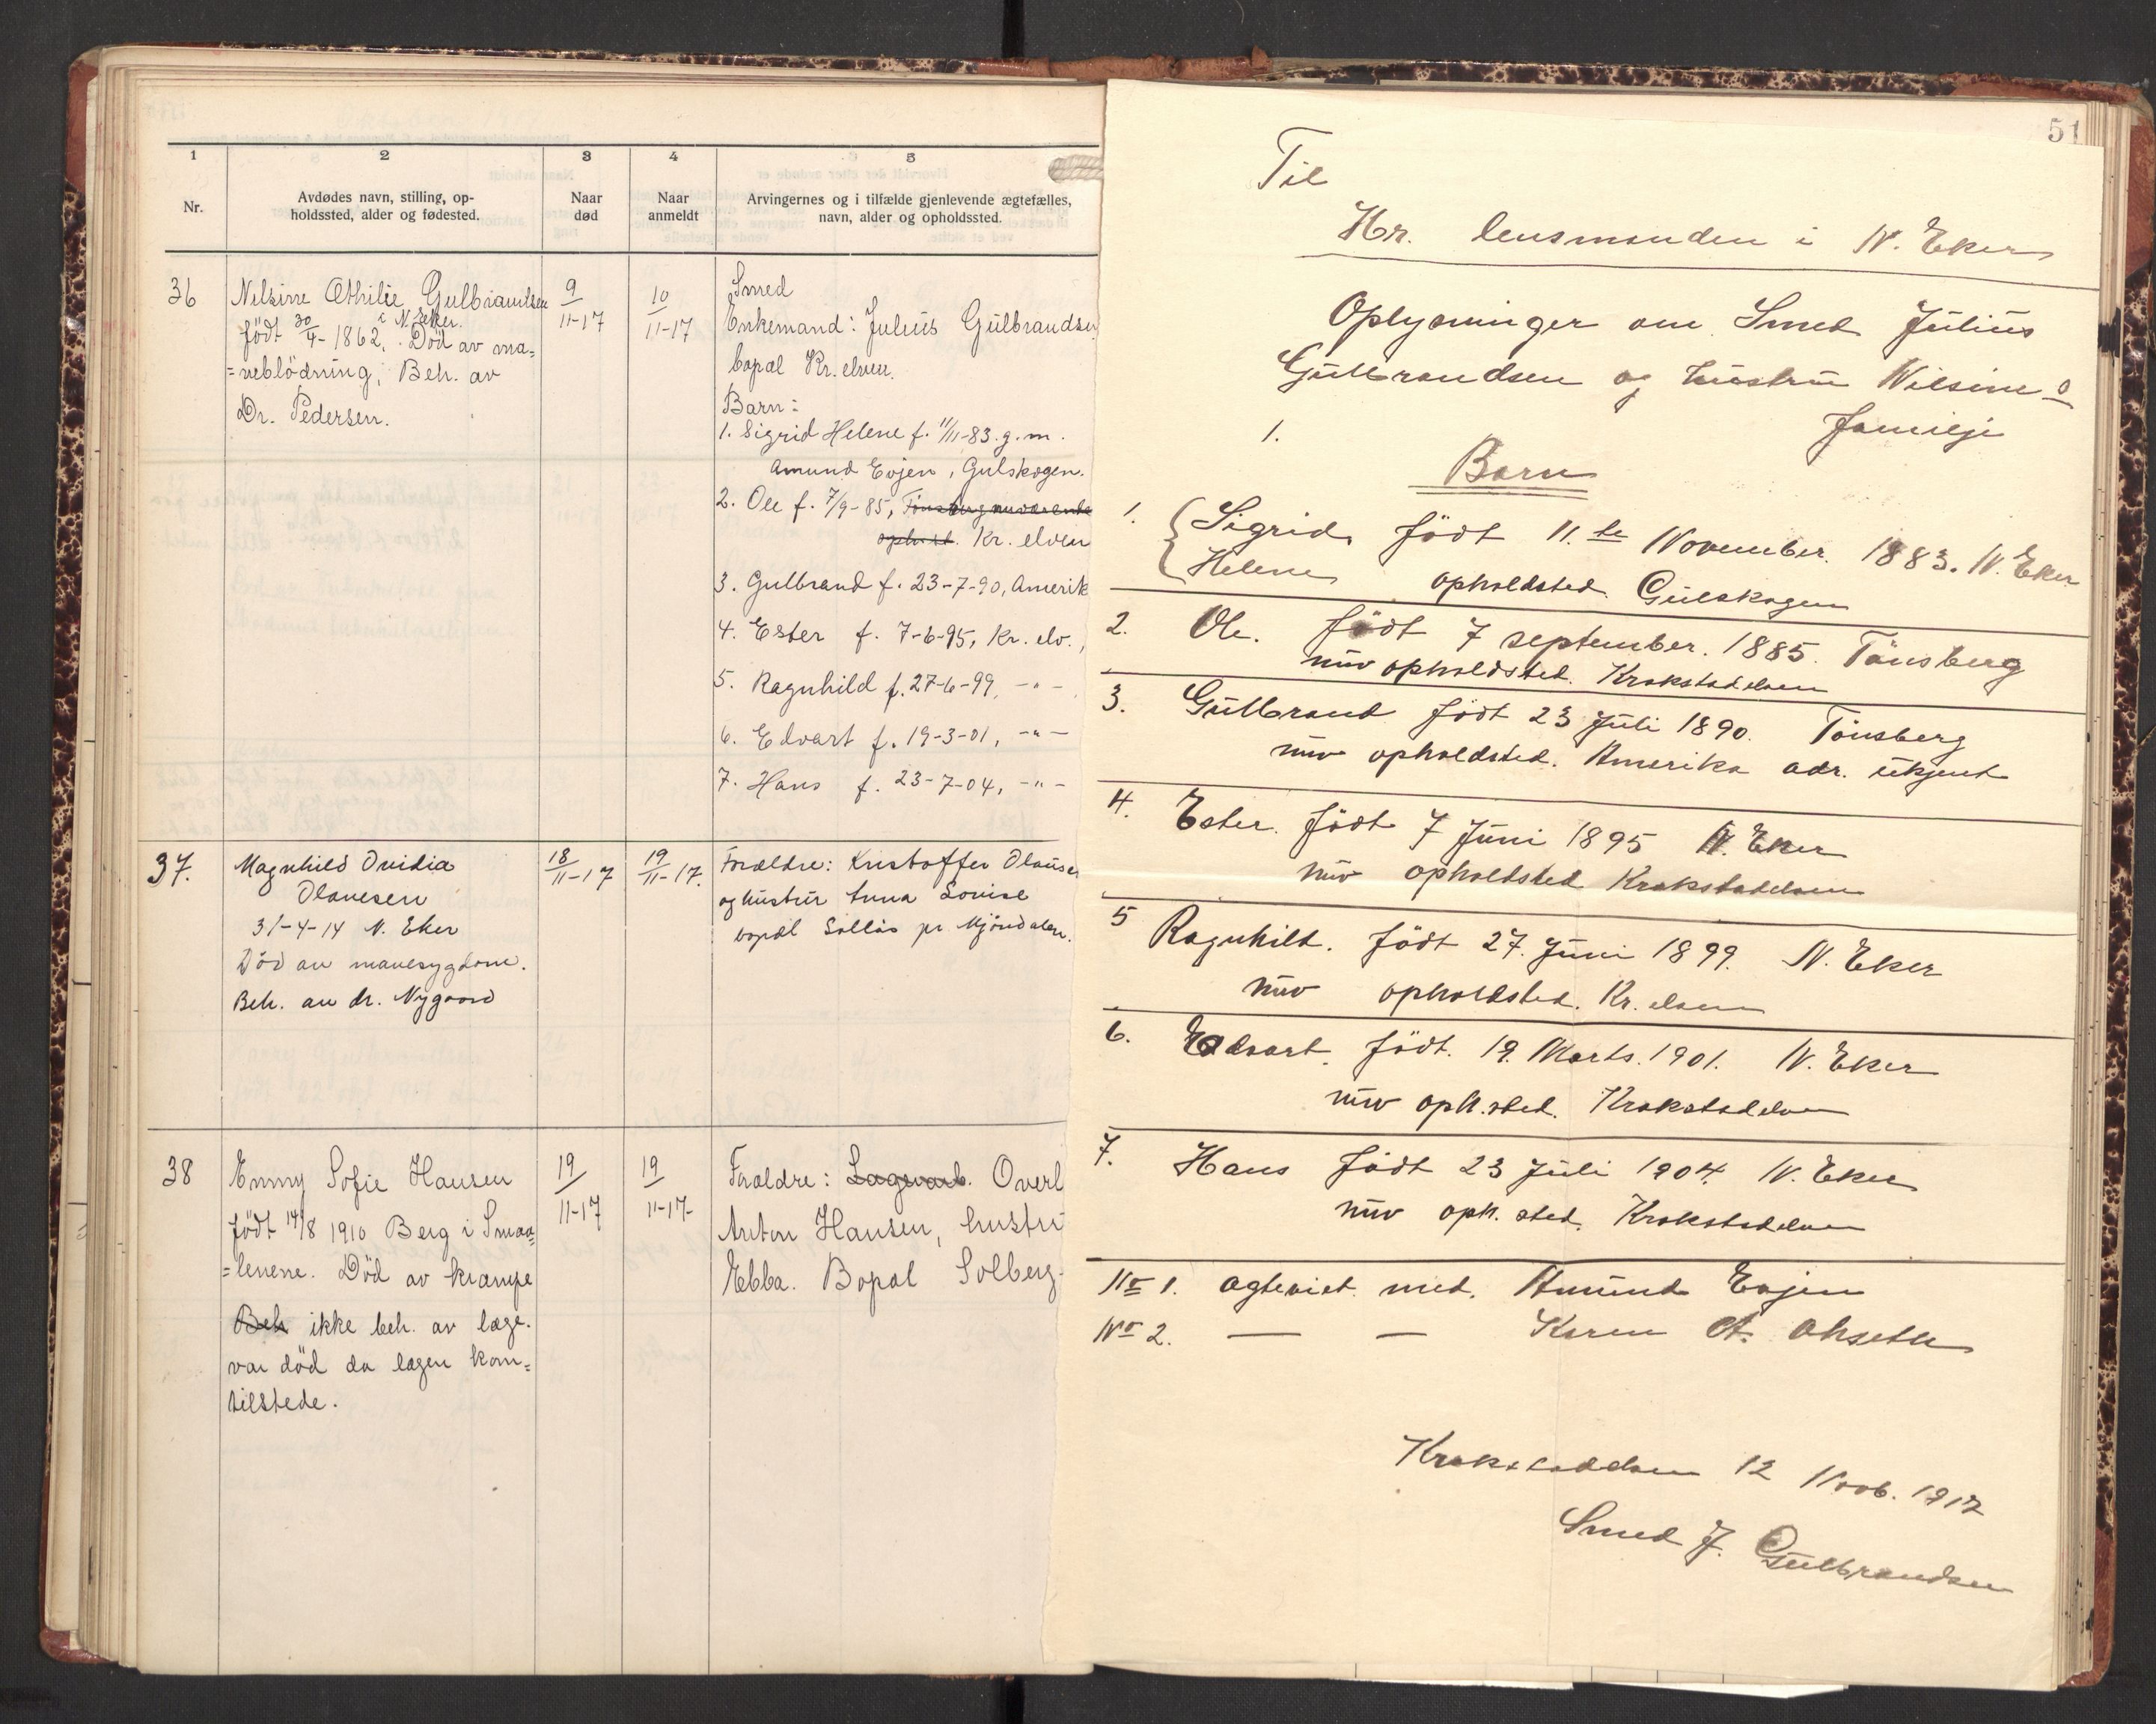 1 2 3 4 5
Nr. Avdødes navn, stilling, op-
holdssted, alder og fødested. Naar
død Naar
anmeldt Arvingernes og i tilfælde gjenlevende ægtefælles,
navn, alder og opholdssted.
36
Nelsine Othilie Gulbrandsen
i N. Eker.
født 30/4-1862. Død av ma=
=veblödning; Beh. av
Dr. Pedersen.
9/11-17
10/11-17
Smed
Enkemand: Julius Gulbrandsen
bopæl Kr. elven.
Barn:
1. Sigrid Helene f. 11/11-83. g. m.
Amund Evjen, Gulskogen.
2. Ole f. 7/9-85, Tønsberg nuværende
opholdst. Kr. elven
3. Gulbrand f. 23-7-90, Amerik
4. Ester f. 7-6-95, Kr. elv.,
5. Ragnhild f. 27-6-99, -"-
6. Edvart f. 19-3-01, -"-
7. Hans f. 23-7-04, -"-
37.
Magnhild Ovidia
Olavesen
31-4-14 N. Eker
Död av mavesygdom.
Beh. av dr. Nygaard
18/11-17
19/11-17.
Forældre: Kristoffer Olausen
og hustru Anna Lovise
bopæl Sollås pr Mjöndalen.
38
Emmy Sofie Hansen
født 14/8 1910 Berg i Smaa=
=lenene. Död av krampe
Beh ikke beh. av læge.
var död da lægen kom=
tilstede.
19/11-17
19/11-17-
Forældre: Lagerarb. Overl
Anton Hansen, hustru
Ebba. Bopæl Solberg-
51
Til
Hr. lensmanden i N. Eker
Oplysninger om Smed Julius
Gulbrandsen og hustru Nilsine s
familje
1.
Barn
1. { Sigrid født 11.te November. 1883. N. Eker
Helene opholdsted. Gulskogen
2. Ole. født 7 september. 1885. Tönsberg
nuv opholdsted. Krokstadelven
3. Gulbrand født 23 Juli 1890. Tönsberg
nuv opholdsted. Amerika adr. ukjent
4. Ester. født 7 Juni 1895 N. Eker
nuv opholdsted Krokstadelven
5 Ragnhild. født 27. Juni 1899. N. Eker
nuv opholdsted. Kr. elven
6. Edvart. født. 19. Marts. 1901. N. Eker
nuv oph. sted. Krokstadelven
7. Hans født 23 Juli 1904. N. Eker
nuv oph. sted. Krokstadelven
No 1. ægteviet. med. Amund Evjen
No 2. — — Karen A.
Krokstadelven 12 Novb. 1917
Smed J. Gulbrandsen